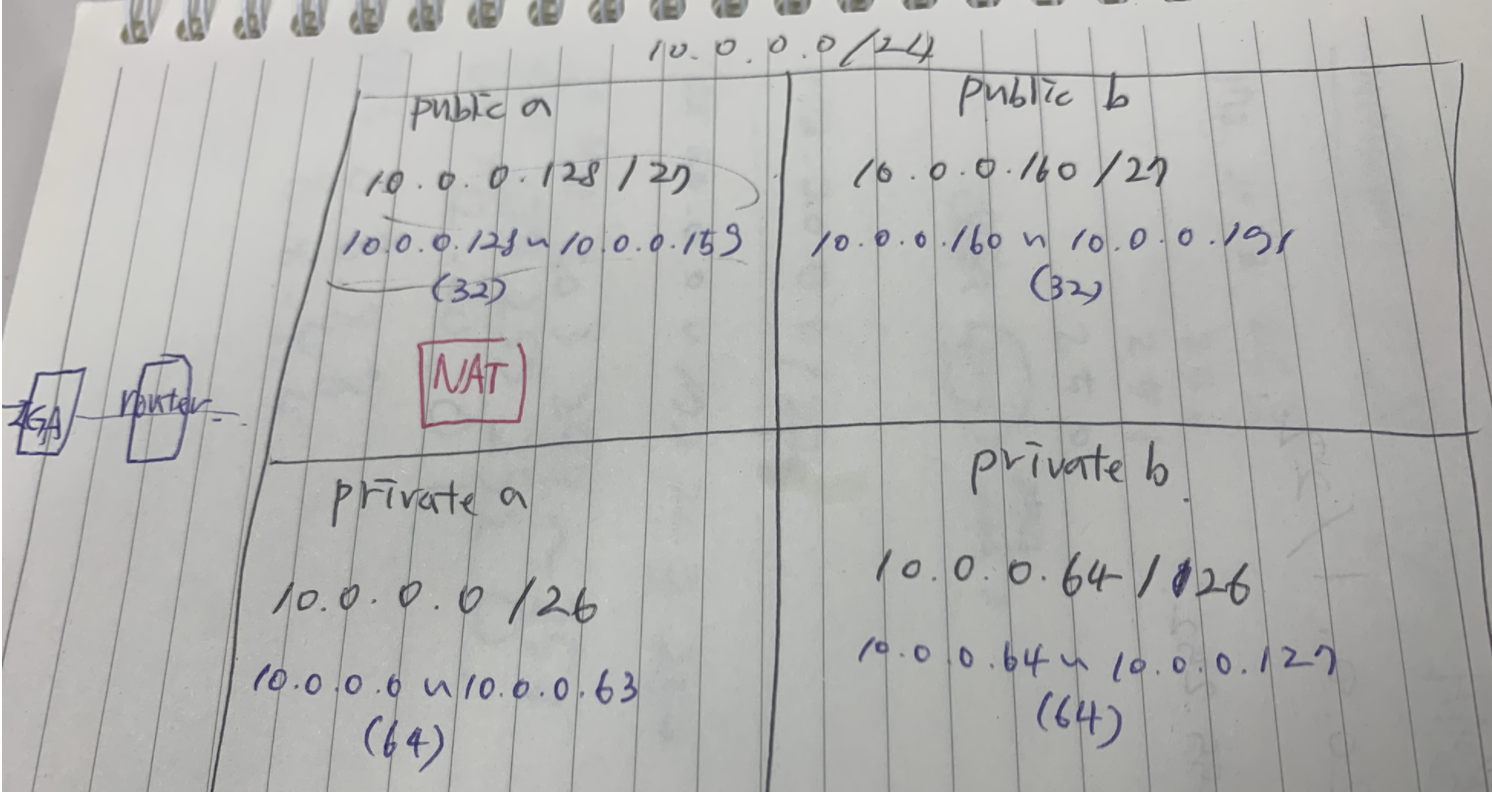 10.0.0.0/24
public a
10.0.0.128/27
10.0.0.128 ~ 10.0.0.159
(32)
NAT
public b
10.0.0.160/27
10.0.0.160 ~ 10.0.0.191
(32)
IGA
router
private a
10.0.0.0/26
10.0.0.0 ~ 10.0.0.63
(64)
private b
10.0.0.64/26
10.0.0.64 ~ 10.0.0.127
(64)